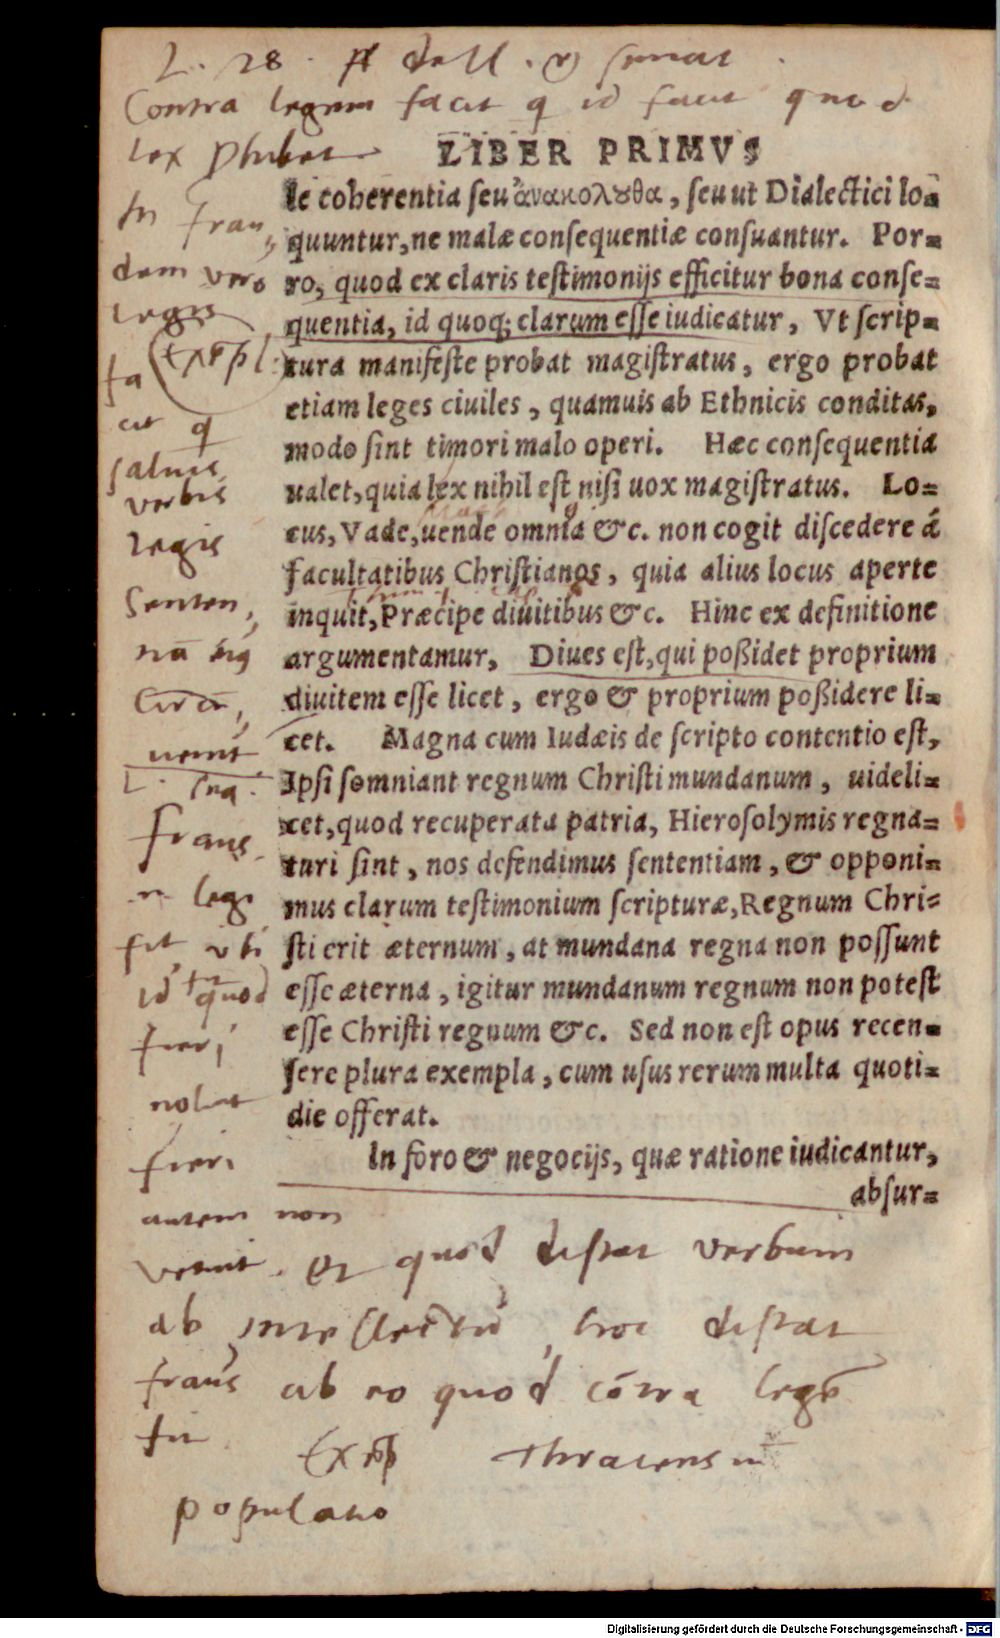 L. 28. ff de ll. & senat.
Contra legem facit q id facit quod
lex phibet
LIBER PRIMVS
le coherentia ſeu ἀνακολȣθα, ſeu ut Dialectici lo=
quuntur, ne malæ conſequentiæ conſuantur. Por=
ro, quod ex claris teſtimonijs efficitur bona conſe=
quentia, id quoq; clarum eſſe iudicatur, Vt ſcrip=
tura manifeſte probat magiſtratus, ergo probat
etiam leges ciuiles, quamuis ab Ethnicis conditas,
modo ſint timori malo operi. Hæc conſequentia
ualet, quia lex nihil eſt niſi uox magiſtratus. Lo=
cus, Vade, uende omnia &c. non cogit diſcedere á
facultatibus Chriſtianos, quia alius locus aperte
inquit, Præcipe diuitibus &c. Hinc ex definitione
argumentamur, Diues eſt, qui poßidet proprium
diuitem eſſe licet, ergo & proprium poßidere li=
cet. Magna cum Iudæis de ſcripto contentio eſt,
Ipſi ſomniant regnum Chriſti mundanum, uideli=
cet, quod recuperata patria, Hieroſolymis regna=
turi ſint, nos defendimus ſententiam, & opponi=
mus clarum teſtimonium ſcripturæ, Regnum Chri=
ſti erit æternum, at mundana regna non poſſunt
eſſe æterna, igitur mundanum regnum non poteſt
eſſe Chriſti regnum &c. Sed non eſt opus recen=
ſere plura exempla, cum uſus rerum multa quoti=
die offerat.
In foro & negocijs, quæ ratione iudicantur,
abſur=
In frau,
dem vero
legis
Exēpl
fa
cit q
saluis
verbis
legis
Senten,
circū,
uenit
fraus
legi
fit, vbi
id quod
fieri
noluit
fieri
autem non
vetuit. Et quod distat verbum
ab intellectu, hoc distat
fraus ab eo quod cōtra legē
fit
Exēp
populatio
Digitalisierung gefördert durch die Deutsche Forschungsgemeinschaft - DFG